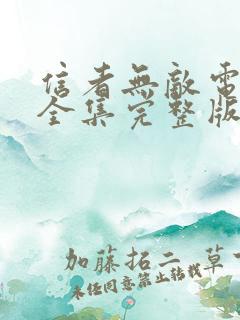 信者無敵電
全集完整版
加藤拓二 草
未任同意禁止转载